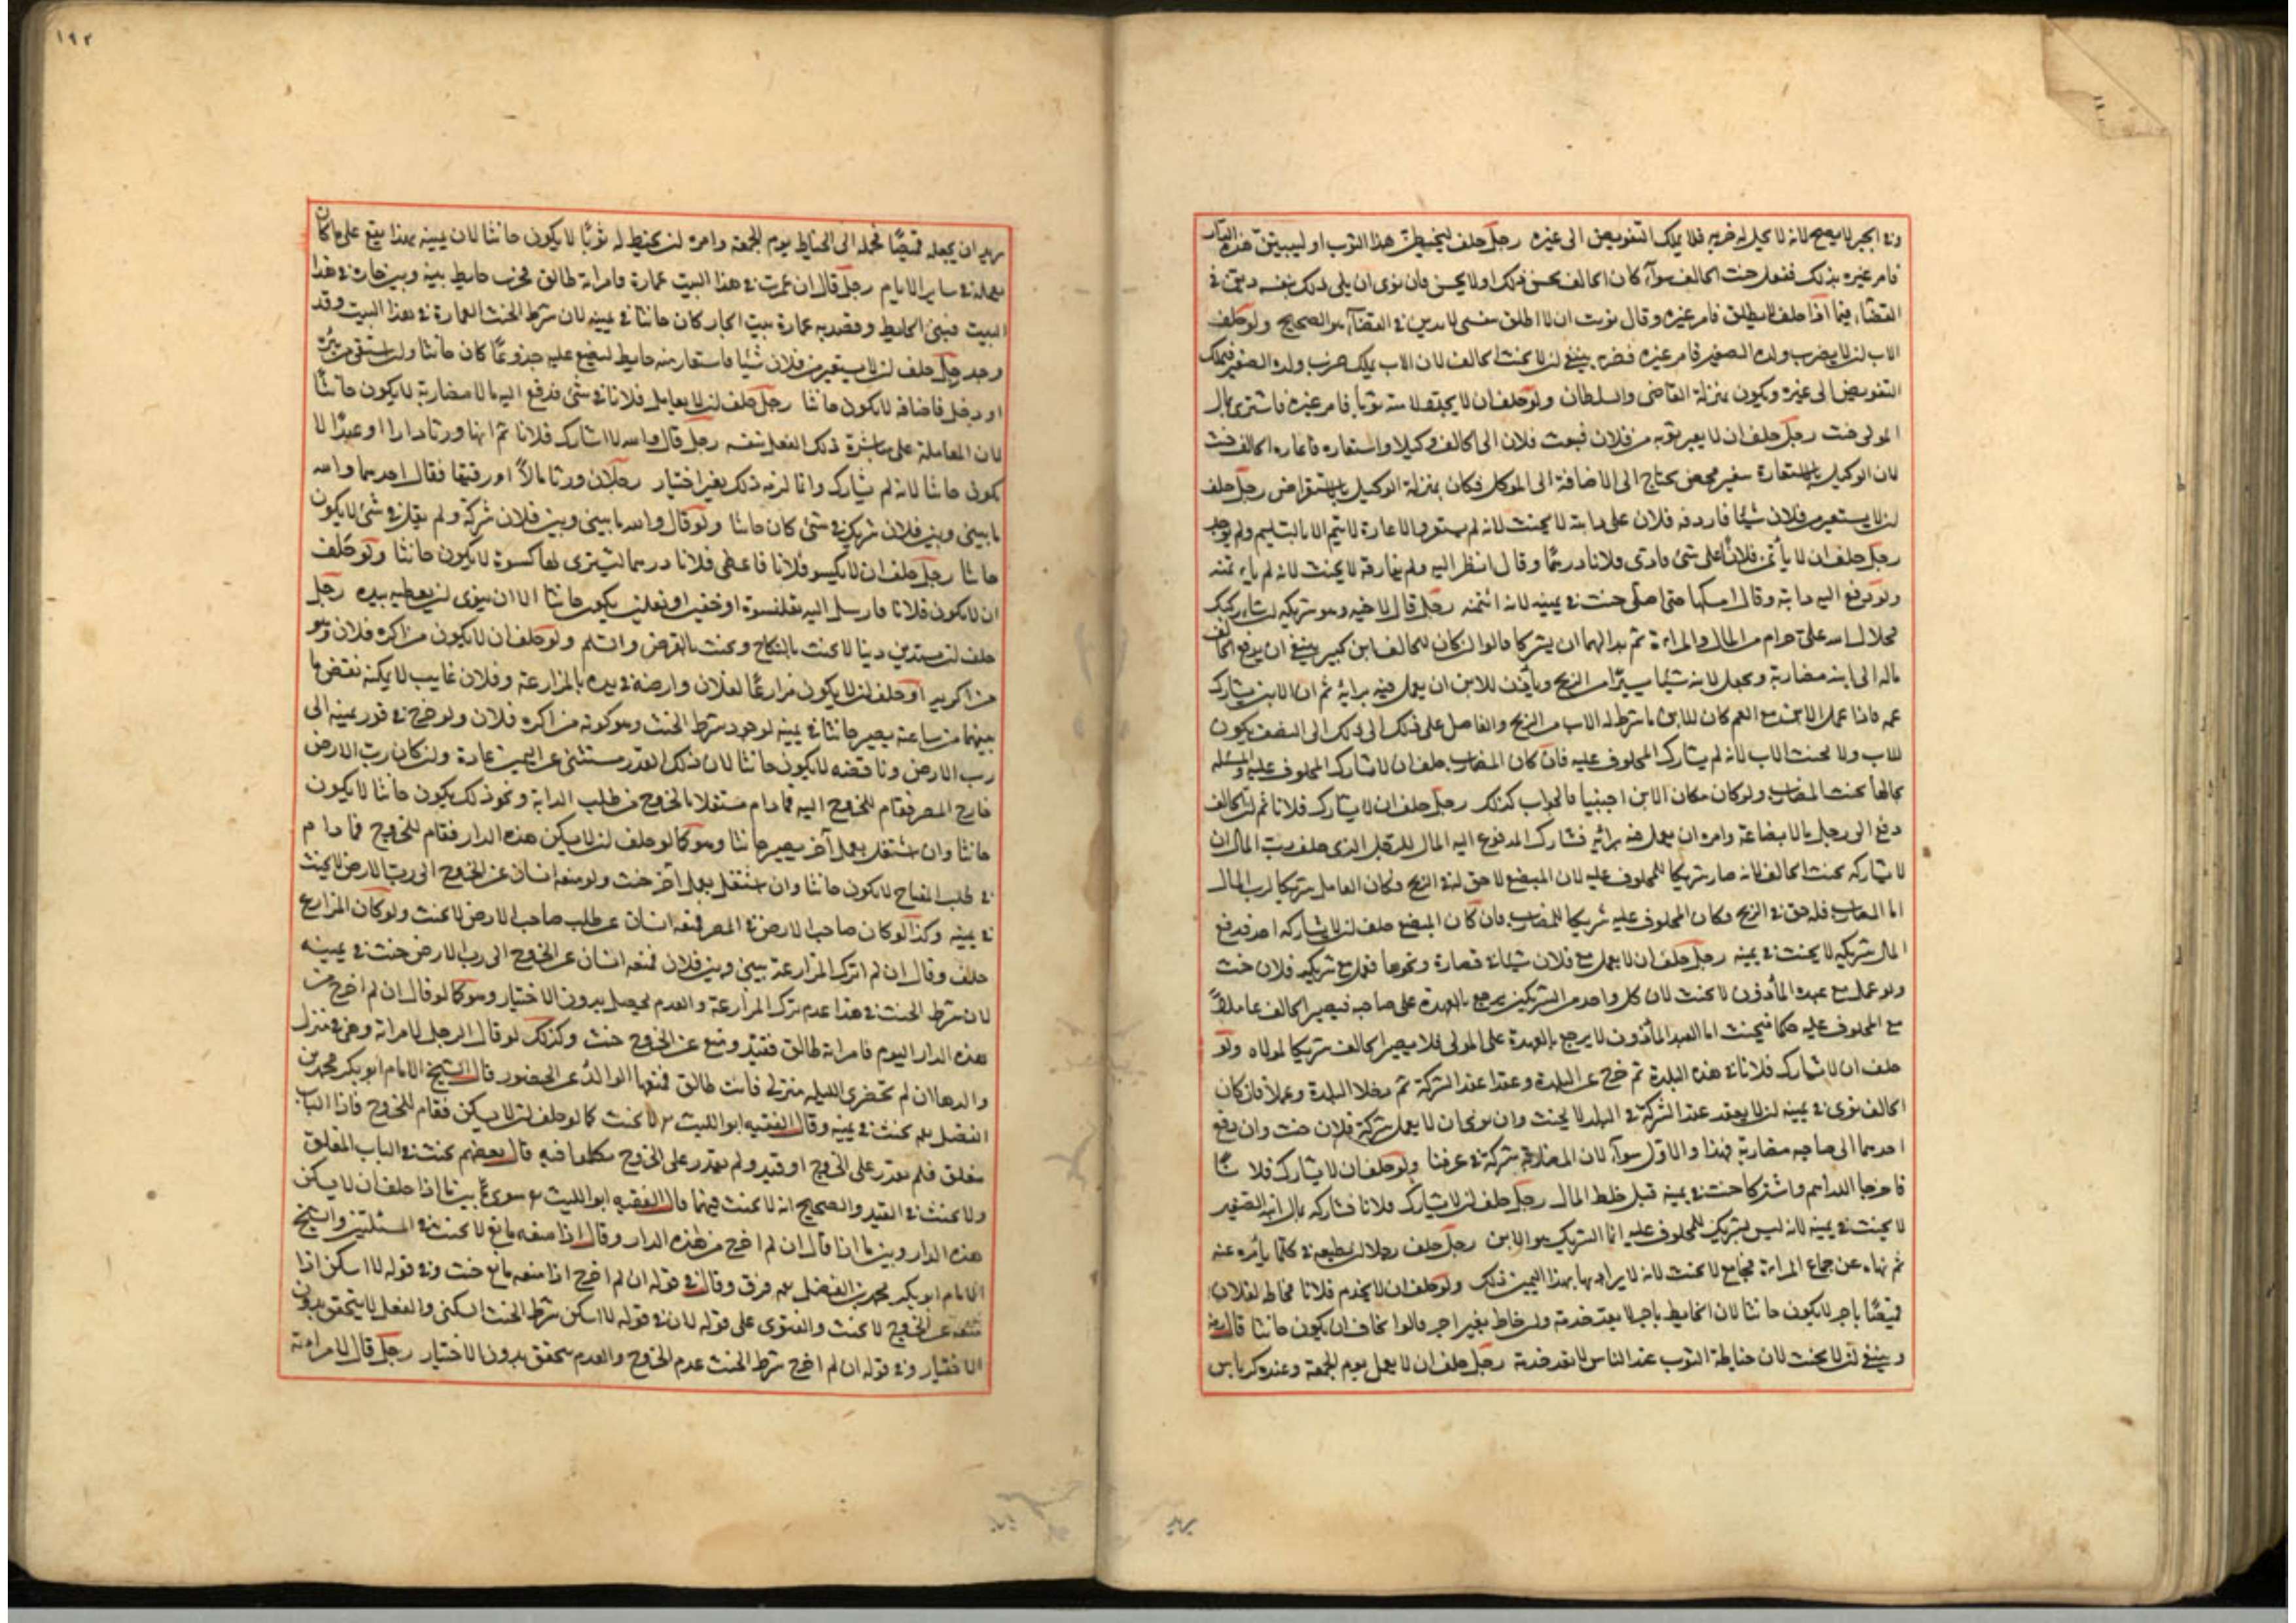 وفي الحر لا يصح لانه لا يحل له ضربه فلا يملك التفويض الى غيره رجل حلف ليخيطن هذا الثوب او ليبنين هذه الدار
فامر غيره بذلك ففعل حنث الحالف سوآء كان الحالف يحسن ذلك او لا يحسن وان نوى ان يلي ذلك بنفسه ديّن في
القضاء فيما اذا حلف لا يطلق فامر غيره وقال نويت ان لا اطلق بنفسي لا يدين في القضآء هو الصحيح ولو حلف
الاب ان لا يضرب ولده الصغير فامر غيره فضربه ينبغي ان لا يحنث الحالف لان الاب يملك ضرب ولده الصغير فيملك
التفويض الى غيره ويكون بمنزلة القاضي والسلطان ولو حلف ان لا فامر غيره فاشترى بمال
المولى حنث رجل حلف ان لا يعير ثوبه من فلان فبعث فلان الى الحالف وكيلا واستعاره فاعاره الحالف حنث
لان الوكيل بالاستعارة سفير محض يحتاج الى الاضافة الى الموكل فكان بمنزلة الوكيل بالاستقراض رجل حلف
ان لا يستعير من فلان شيئا فاردفه فلان على دابته لا يحنث لانه لم يستعر والاعارة لا يتم الا بالتسليم ولم يوجد
رجل حلف ان لا يأتمن فلانًا على شئ فارى فلانا درهمًا وقال انظر اليه ولم يفارقه لا يحنث لانه لم يأتمنه
ولو دفع اليه دابته وقال امسكها حتى اصلي حنث في يمينه لانه ائتمنه رجل قال لاخيه وهو شريكه ان شاركتك
فحلال الله علي حرام من المال والمراءة ثم بدا لهما ان يشتركا قالوا ان كان للحالف ابن كبير ينبغي ان يدفع الحالف
ماله الى ابنه مضاربة ويجعل لابنه شيئا يسيرًا من الربح ويأذن للابن ان يعمل فيه برايه ثم ان الابن يشارك
عمه فاذا عمل الابن مع العم كان للابن ما شرط له الاب من الربح والفاضل على ذلك الى النصف يكون
للاب ولا يحنث الاب لانه لم يشارك المحلوف عليه فان كان المضارب حلف ان لا يشارك المحلوف عليه والمسئلة
بحالها يحنث المضارب ولو كان مكان الابن اجنبيا فالجواب كذلك رجل حلف ان لا يشارك فلانا ثم ان الحالف
دفع الى رجل مالا بضاعة وامره ان يعمل فيه برائه فشارك المدفوع اليه المال للرجل الذي حلف رب المال ان
لا يشاركه يحنث الحالف لانه صار شريكا للمحلوف عليه لان المبضع لا حق له في الربح وكان العامل شريكا لرب المال
اما المضارب فله حق في الربح فكان المحلوف عليه شريكا للمضارب فان كان المبضع حلف ان لا يشاركه احد فدفع
المال شريكه لا يحنث في يمينه رجل حلف ان لا يعمل مع فلان شيئا في قصارة ونحوها فعمل مع شريك فلان حنث
ولو عمل مع عبده المأذون لا يحنث لان كل واحد من الشريكين يرجع بالعهدة على صاحبه فيصير الحالف عاملاً
مع المحلوف عليه حكما فيحنث اما العبد المأذون لا يرجع بالعهدة على المولى فلا يصير الحالف شريكا لمولاه ولو
حلف ان لا يشارك فلانا في هذه البلدة ثم خرج عن البلدة وعقدا عقد الشركة ثم دخلا البلدة وعملا فان كان
الحالف نوى في يمينه ان لا يعقد عقد الشركة في البلد لا يحنث وان نوى ان لا يعمل بشركة فلان حنث وان دفع
احدهما الى صاحبه مضاربة فهذا والاول سوآء لان المضاربة شركة في عرفنا ولو حلف ان لا يشارك فلانًا
فاخرجا الدراهم واشتركا حنث في يمينه قبل خلط المال رجل حلف ان لا يشارك فلانا فشاركه بمال ابنه الصغير
لا يحنث في يمينه لانه ليس بشريك للمحلوف عليه انما الشريك هو الابن رجل حلف رجلا ان يطيعه في كلما يأمره عنه
ثم نهاه عن جماع المراءة فجامع لا يحنث لانه لا يراد بها بهذا اليمين ذلك ولو حلف ان لا يخدم فلانا فخاط لفلان
قميصًا باجر لا يكون حانثا لان الخايط باجر لا يعد خدمة وان خاط بغير اجر قالوا يخاف ان يكون حانثا قال رضي
وينبغي ان لا يحنث لان خياطة الثوب عند الناس لا تعد خدمة رجل حلف ان لا يعمل يوم الجمعة وعنده كرباس
يريد
١٩٢
يريد ان يجعله قميصًا فحمله الى الخياط يوم الجمعة وامره ان يخيط له ثوبًا لا يكون حانثا لان يمينه بهذا يقع على ما كان
يعمله في ساير الايام رجل قال ان عمرت في هذا البيت عمارة فامراته طالق فخرب حايط بينه وبين جاره في هذا
البيت فبنى الحايط وقصد به عمارة بيت الجار كان حانثا في يمينه لان شرط الحنث العمارة في هذا البيت وقد
وجد رجل حلف ان لا يستعير من فلان شيئا فاستعار منه حايط ليضع عليه جذوعًا كان حانثا وان استقى من بئره
او دخل فاضافه لا يكون حانثا رجل حلف ان لا يعامل فلانا في شئ فدفع اليه مالا مضاربة لا يكون حانثًا
لان المعاملة على مباشرة ذلك الفعل بنفسه رجل قال والله لا اشارك فلانا ثم انهما ورثا دارا او عبدًا لا
يكون حانثا لانه لم يشارك وانما لزمه ذلك بغير اختيار رجلان ورثا مالاً او رقيقا فقال احدهما والله
ما بيني وبين فلان شريك في شئ كان حانثا ولو قال والله ما بيني وبين فلان شركة ولم يقل في شئ لا يكون
حانثا رجل حلف ان لا يكسو فلانا فاعطى فلانا درهما ليشترى لها كسوة لا يكون حانثا ولو حلف
ان لا يكون فلانا فارسل اليه بقلنسوة او خفين او نعلين يكون حانثا الا ان ينوى ان يعطيه بيده رجل
حلف ان لا يستدين دينا لا يحنث بالنكاح ويحنث بالقرض والسلم ولو حلف ان لا يكون من اكره فلان وهو
من اكريه او حلف ان لا يكون مزارعًا لفلان وارضه في يده بالمزارعة وفلان غايب لا يمكنه نقض ما
بينهما من ساعته يصير حانثا في يمينه لوجود شرط الحنث وهو كونه من اكره فلان ولو خرج في فور يمينه الى
رب الارض وناقضه لا يكون حانثا لان ذلك القدر مستثنى عن اليمين عادة وان كان رب الارض
خارج المصر فقام للخروج اليه فما دام مشتغلا بالخروج من طلب الدابة ونحو ذلك يكون حانثا لا يكون
حانثا وان اشتغل بعمل آخر يصير حانثا وهو كما لو حلف ان لا يسكن هذه الدار فقام للخروج فما دام
في طلب المفتاح لا يكون حانثا وان اشتغل بعمل آخر حنث ولو منعه انسان عن الخروج الى رب الارض لا يحنث
في يمينه وكذا لو كان صاحب الارض في المصر فمنعه انسان عن طلب صاحب الارض لا يحنث ولو كان المزارع
حلف وقال ان لم اترك المزارعة بيني وبين فلان فمنعه انسان عن الخروج الى رب الارض حنث في يمينه
لان شرط الحنث في هذا عدم ترك المزارعة والعدم يحصل بدون الاختيار وهو كما لو قال ان لم اخرج من
هذه الدار اليوم فامراته طالق فقيّد ومنع عن الخروج حنث وكذلك لو قال الرجل لامراته وهي في منزل
والدها ان لم تحضرى الليلة منزلي فانت طالق فمنعها الوالد عن الحضور قال الشيخ الامام ابو بكر محمد بن
الفضل يحنث في يمينه وقال الفقيه ابو الليث لا يحنث كما لو حلف ان لا يسكن فقام للخروج فاذا الباب
مغلق فلم يقدر على الخروج او قيد ولم يقدر على الخروج قال بعضهم يحنث في الباب المغلق
ولا يحنث في القيد والصحيح انه لا يحنث فيهما قال الفقيه ابو الليث بين ما اذا حلف ان لا يسكن
هذه الدار وبين ما اذا قال ان لم اخرج من هذه الدار وقال اذا منعه مانع لا يحنث في المسئلتين والشيخ
الامام ابو بكر محمد بن الفضل فرق وقال في قوله ان لم اخرج اذا منعه مانع حنث وفي قوله لا اسكن اذا
منعه عن الخروج لا يحنث والفتوى على قوله لان في قوله لا اسكن شرط الحنث السكنى والفعل لا يتحقق بدون
الاختيار وفي قوله ان لم اخرج شرط الحنث عدم الخروج والعدم يتحقق بدون الاختيار رجل قال لامراته